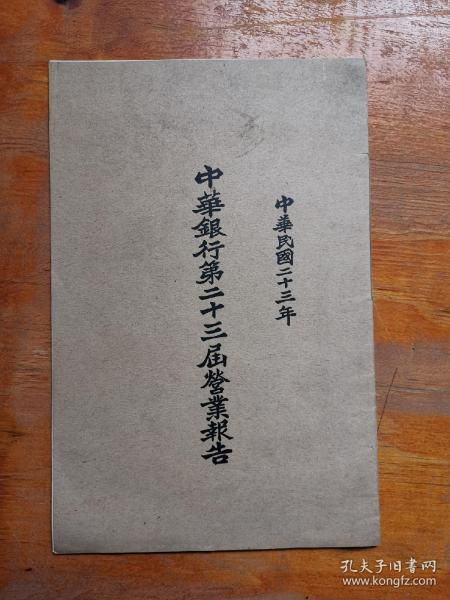 中華民國二十三年
中華銀行第二十三屆營業報告
孔夫子旧书网
www.kongfz.com